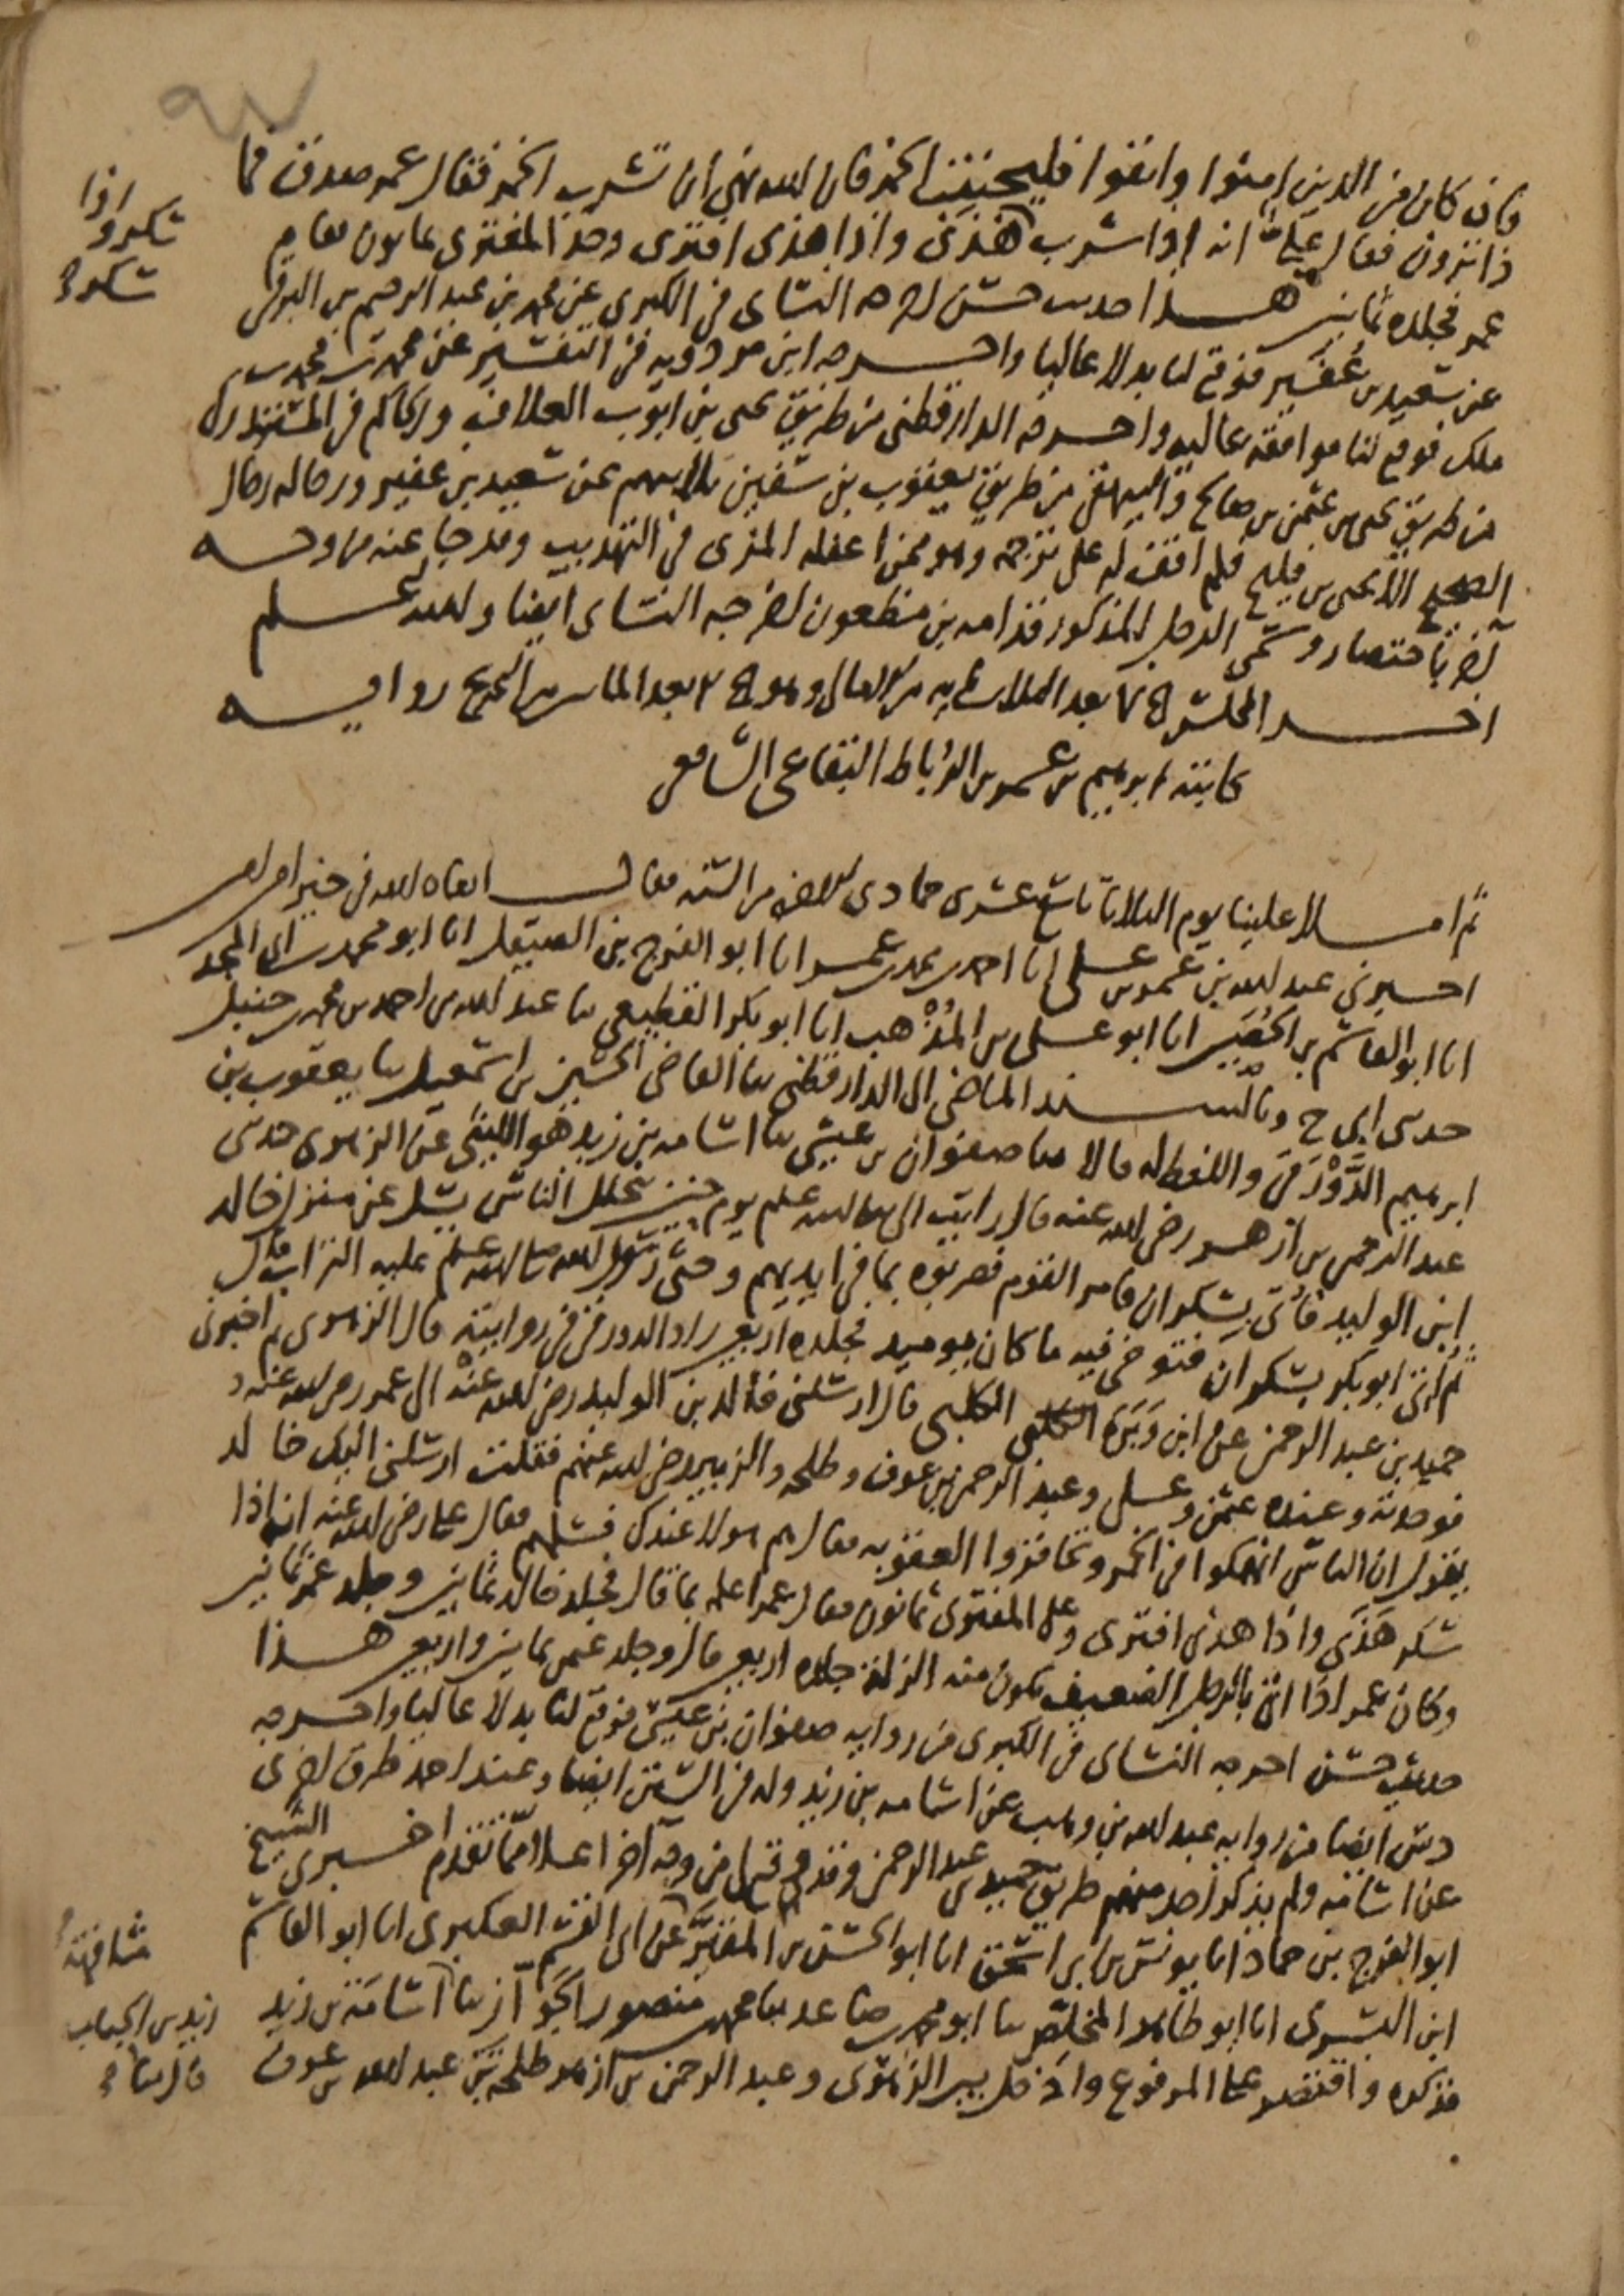 فإن كان من الذين امنوا واتقوا فليجتنب الخمر فإن الله نهى أن تشرب الخمر فقال عمر صدقت فما
ذا ترون فقال علي انه إذا شرب هذى واذا هذى افترى وحد المفتري ثمانون فأمر
عمر فجلده ثمانين هذا حديث حسن اخرجه النسائي في الكبرى عن محمد بن عبد الرحيم بن البرقي
عن سعيد بن عفير فوقع لنا بدلا عاليا واخرجه ابن مردويه في التفسير عن محمد بن محمد بن
ملك فوقع لنا موافقة عالية واخرجه الدارقطني من طريق يحيى بن ايوب العلاف والحاكم في المستدرك
من طريق يحيى بن عثمن بن صالح والبيهقي من طريق يعقوب بن سفين ثلاثتهم عن سعيد بن عفير ورجاله رجال
الصحيح الا يحيى بن فليح فلم اقف له على ترجمة وهو ممن اغفله المزي في التهذيب وقد جا عنه من وجه
آخر باختصار وسمى الرجل المذكور قدامه بن مظعون اخرجه النسائي ايضا والله اعلم
اخر المجلس بعد الثلاثمايه من الامالي وهو بعد المايتين من التخريج رواية
كاتبه ابرهيم بن عمر بن الرباط البقاعي الشافعي
ثم املا علينا يوم الثلاثا تاسع عشرى جمادى الاخره من السنه فقال ابقاه الله في خير امين
اخبرني عبد الله بن عمر بن علي انا احمد بن محمد بن عمر انا ابو الفرج بن الصيقل انا ابو محمد بن ابي المجد
انا ابو القاسم بن الحصين انا ابو علي بن المذهب انا ابو بكر القطيعي ثنا عبد الله بن احمد بن محمد بن حنبل
حدثني ابي ح وبالسند الماضي الى الدارقطني ثنا القاضي الحسين بن اسمعيل ثنا يعقوب بن
ابرهيم الدورقي واللفظ له قالا ثنا صفوان بن عيسى ثنا اسامه بن زيد هو الليثي عن الزهري حدثني
عبد الرحمن بن ازهر رضي الله عنه قال رايت النبي صلى الله عليه وسلم يوم حنين يتخلل الناس يسل عن منزل خالد
ابن الوليد فأتي بسكران فامر القوم فضربوه بما في ايديهم وحثى رسول الله صلى الله عليه وسلم عليه التراب قال
ثم أتي ابو بكر بسكران فتوخى فيه ما كان يوميد فجلده اربعين زاد الدورقي في روايته قال الزهري ثم اخبرني
حميد بن عبد الرحمن عن ابن وبرة الكلبي قال ارسلني خالد بن الوليد رضي الله عنه الى عمر رضي الله عنه
فوجدته وعنده عثمن وعلي وعبد الرحمن بن عوف وطلحه والزبير رضي الله عنهم فقلت ارسلني اليك خالد
يقول ان الناس انهمكوا في الخمر وتحاقروا العقوبه فقال هم هولا عندك فسلهم فقال علي رضي الله عنه انه اذا
سكر هذى واذا هذى افترى وعلى المفتري ثمانون فقال عمر ابلغه بما قال فجلد خالد ثمانين وجلد عمر ثمانين
وكان عمر اذا اتي بالرجل الضعيف تكون منه الزلة جلده اربعين قال وجلد عثمن ثمانين واربعين هذا
حديث حسن اخرجه النسائي في الكبرى من روايه صفوان بن عيسى فوقع لنا بدلا عاليا واخرجه
ايضا من روايه عبد الله بن وهب عن اسامه بن زيد وله في السنن ايضا وعند احمد طرق اخرى
عن اسامه ولم يذكر احد منهم طريق حميد بن عبد الرحمن وقد وقع لي من وجه آخر اعلا مما تقدم اخبرني الشيخ
ابو الفرج بن حماد انا يونس بن ابي اسحق انا ابو الحسن بن المقير عن ابي القسم العكبري انا ابو القاسم
ابن البسري انا ابو طاهر المخلص ثنا ابو محمد بن صاعد ثنا محمد بن منصور الجواز ثنا اسامة بن زيد
فذكره واقتصر على المرفوع وادخل بين الزهري وعبد الرحمن بن ازهر طلحة بن عبد الله بن عوف
اذا
سكروا
سكر
مشافهة
زيد بن الحباب
قال ثنا